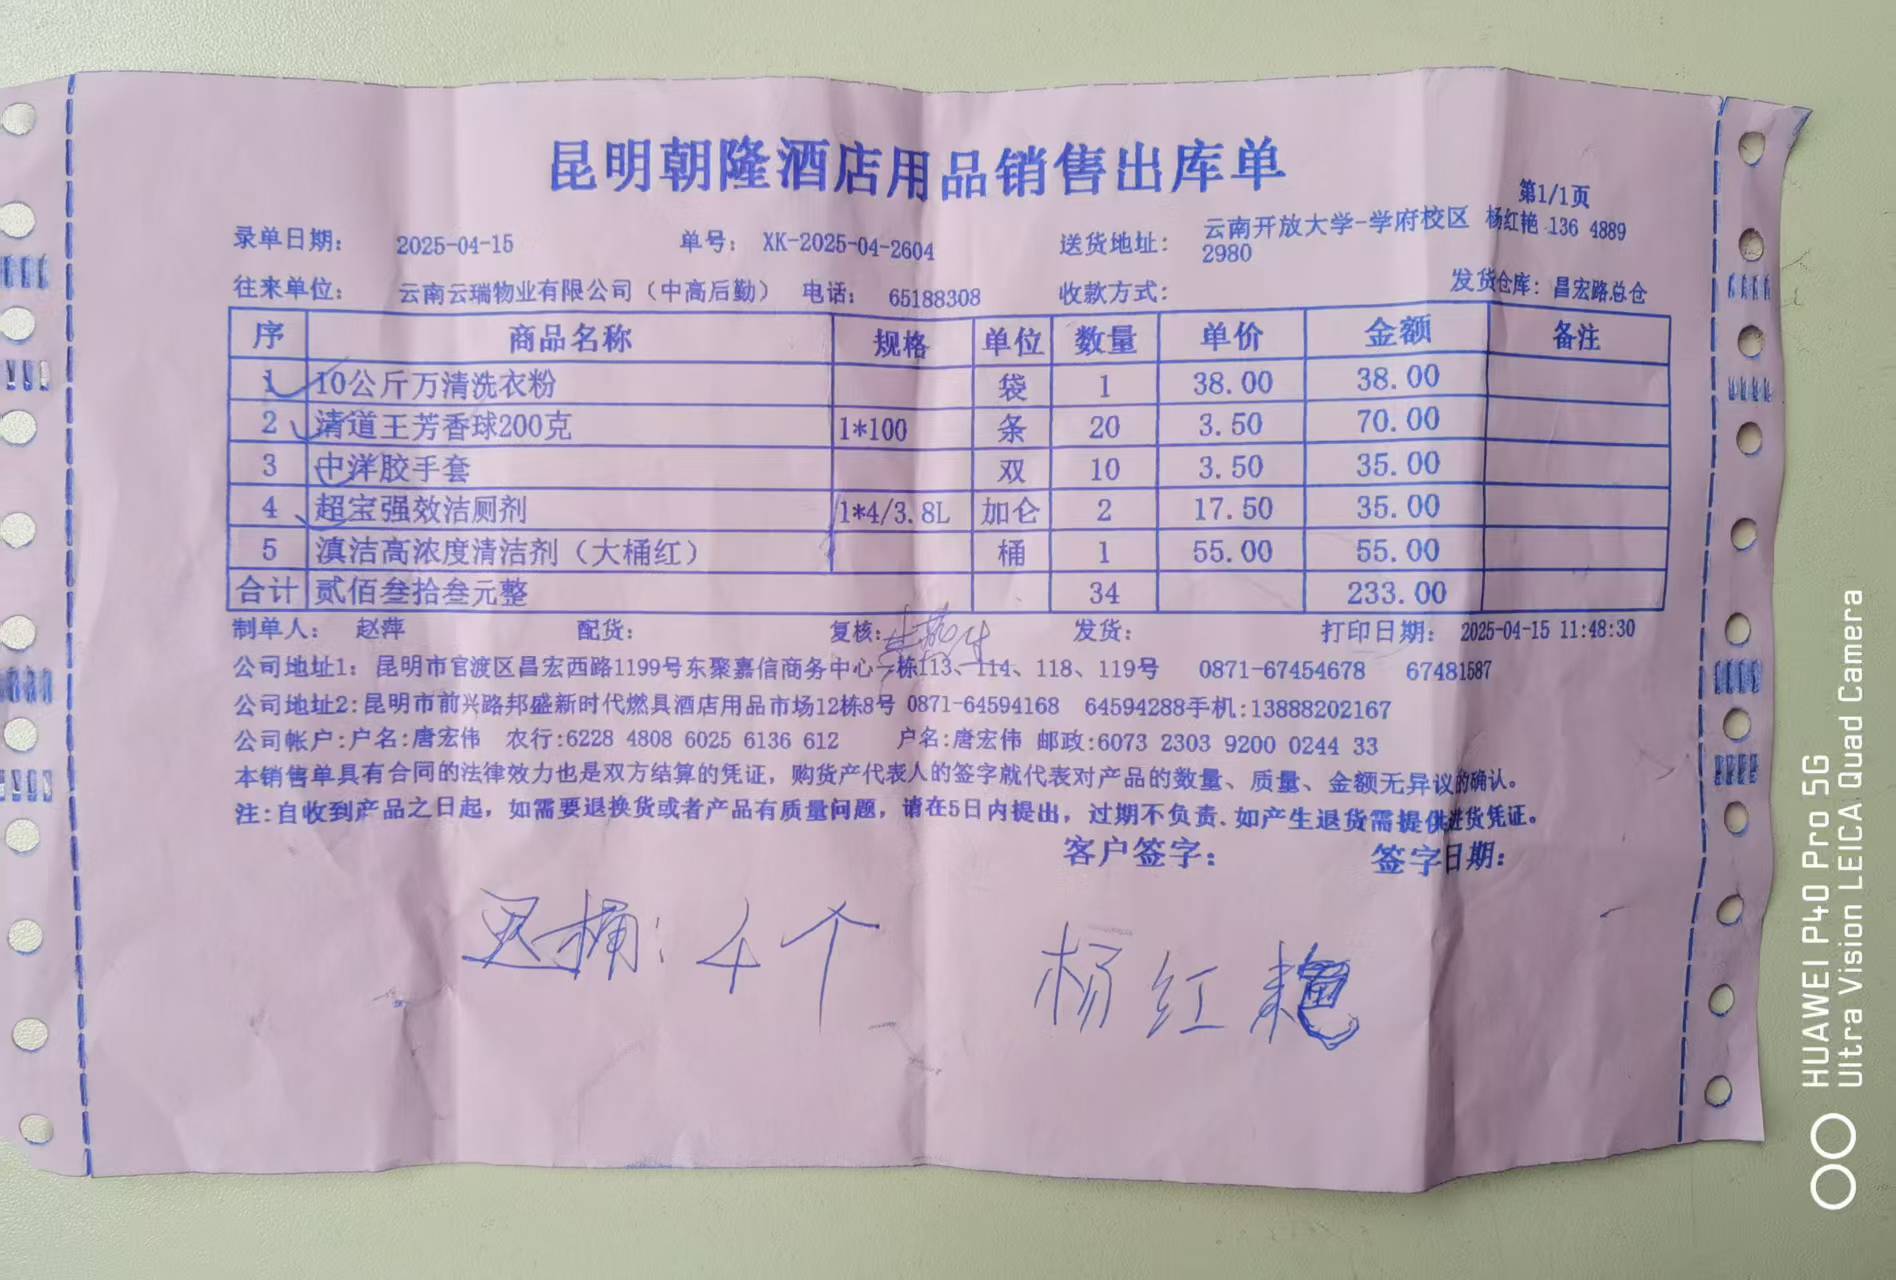 昆明朝隆酒店用品销售出库单
第1/1页
录单日期: 2025-04-15 单号: XK-2025-04-2604 送货地址: 云南开放大学-学府校区 杨红艳 136 4889
2980
往来单位: 云南云瑞物业有限公司（中高后勤） 电话: 65188308 收款方式: 发货仓库: 昌宏路总仓
序 商品名称 规格 单位 数量 单价 金额 备注
1 10公斤万清洗衣粉 袋 1 38.00 38.00
2 清道王芳香球200克 1*100 条 20 3.50 70.00
3 中洋胶手套 双 10 3.50 35.00
4 超宝强效洁厕剂 1*4/3.8L 加仑 2 17.50 35.00
5 滇洁高浓度清洁剂（大桶红） 桶 1 55.00 55.00
合计 贰佰叁拾叁元整 34 233.00
制单人: 赵萍 配货: 复核: 发货: 打印日期: 2025-04-15 11:48:30
公司地址1: 昆明市官渡区昌宏西路1199号东聚嘉信商务中心一栋113、114、118、119号 0871-67454678 67481587
公司地址2:昆明市前兴路邦盛新时代燃具酒店用品市场12栋8号 0871-64594168 64594288手机:13888202167
公司帐户:户名:唐宏伟 农行:6228 4808 6025 6136 612 户名:唐宏伟 邮政:6073 2303 9200 0244 33
本销售单具有合同的法律效力也是双方结算的凭证，购货产代表人的签字就代表对产品的数量、质量、金额无异议的确认。
注:自收到产品之日起，如需要退换货或者产品有质量问题，请在5日内提出，过期不负责.如产生退货需提供进货凭证。
客户签字: 签字日期:
退桶: 4个 杨红艳
HUAWEI P40 Pro 5G
Ultra Vision LEICA Quad Camera